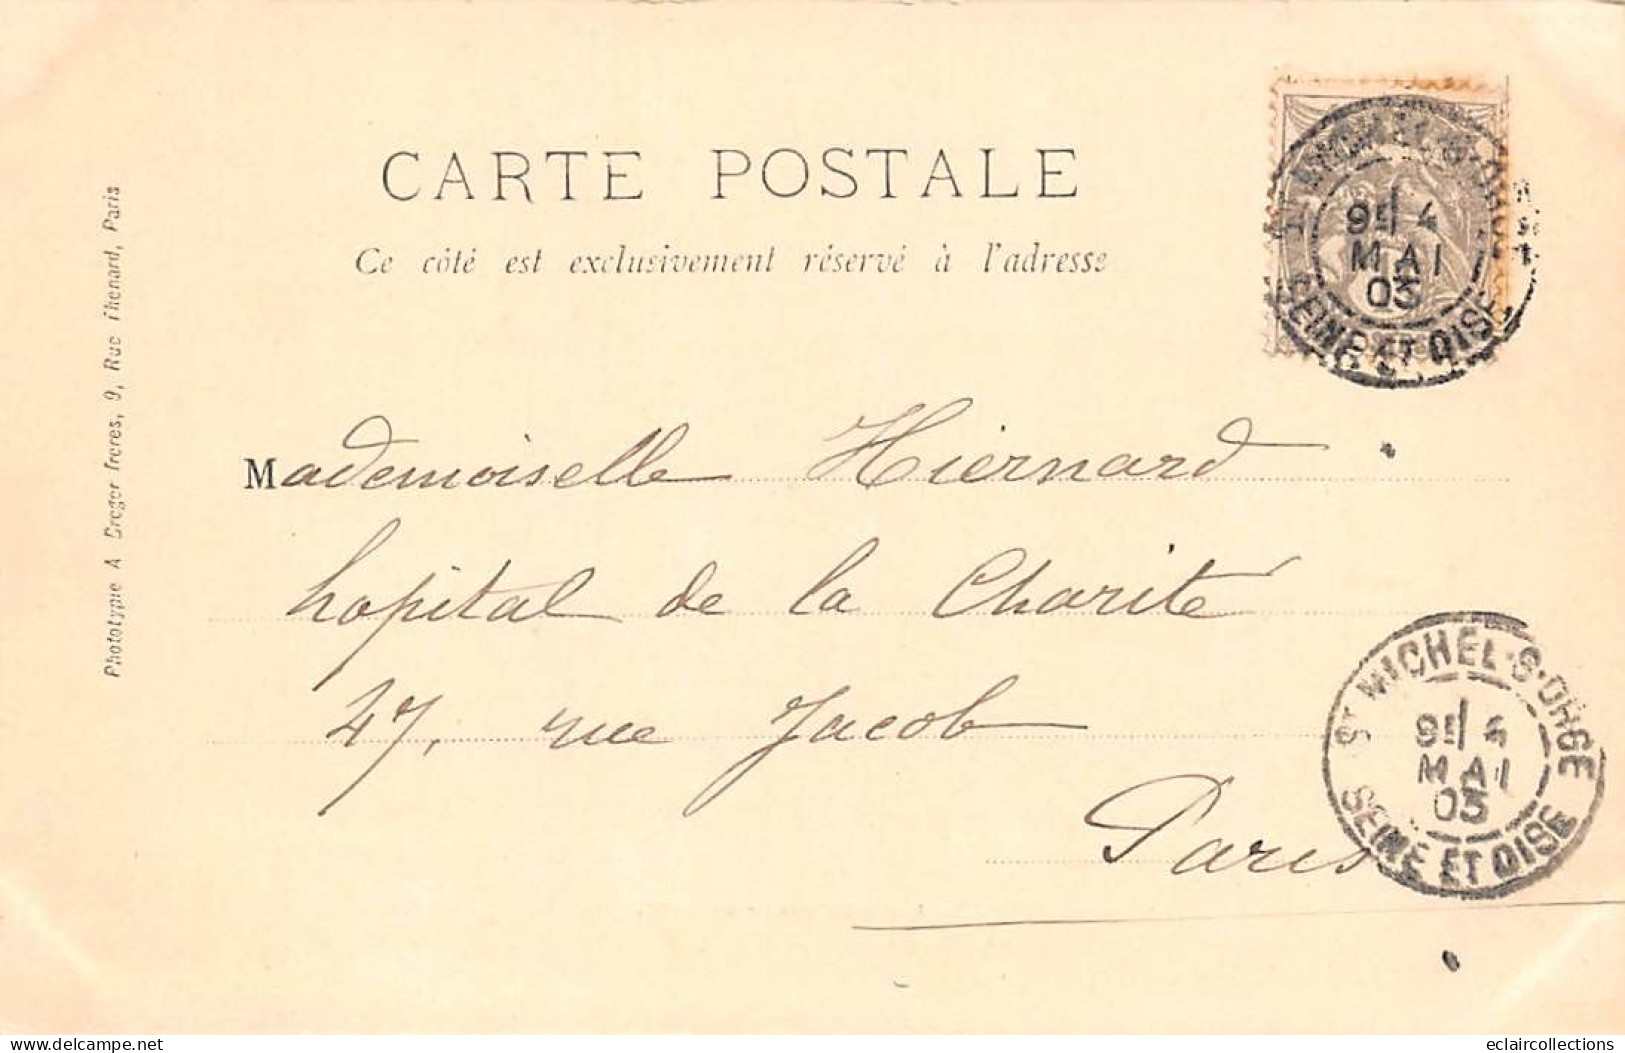 CARTE POSTALE
Ce côté est exclusivement réservé à l'adresse
Phototypie A Breger freres, 9, Rue Thenard, Paris
Mademoiselle Hiernard
hopital de la Charite
47, rue Jacob
Paris
ST MICHEL-S-ORGE
9E 4
MAI
03
SEINE ET OISE
ST MICHEL-S-ORGE
9E 4
MAI
03
SEINE ET OISE
www.delcampe.net
eclaircollections